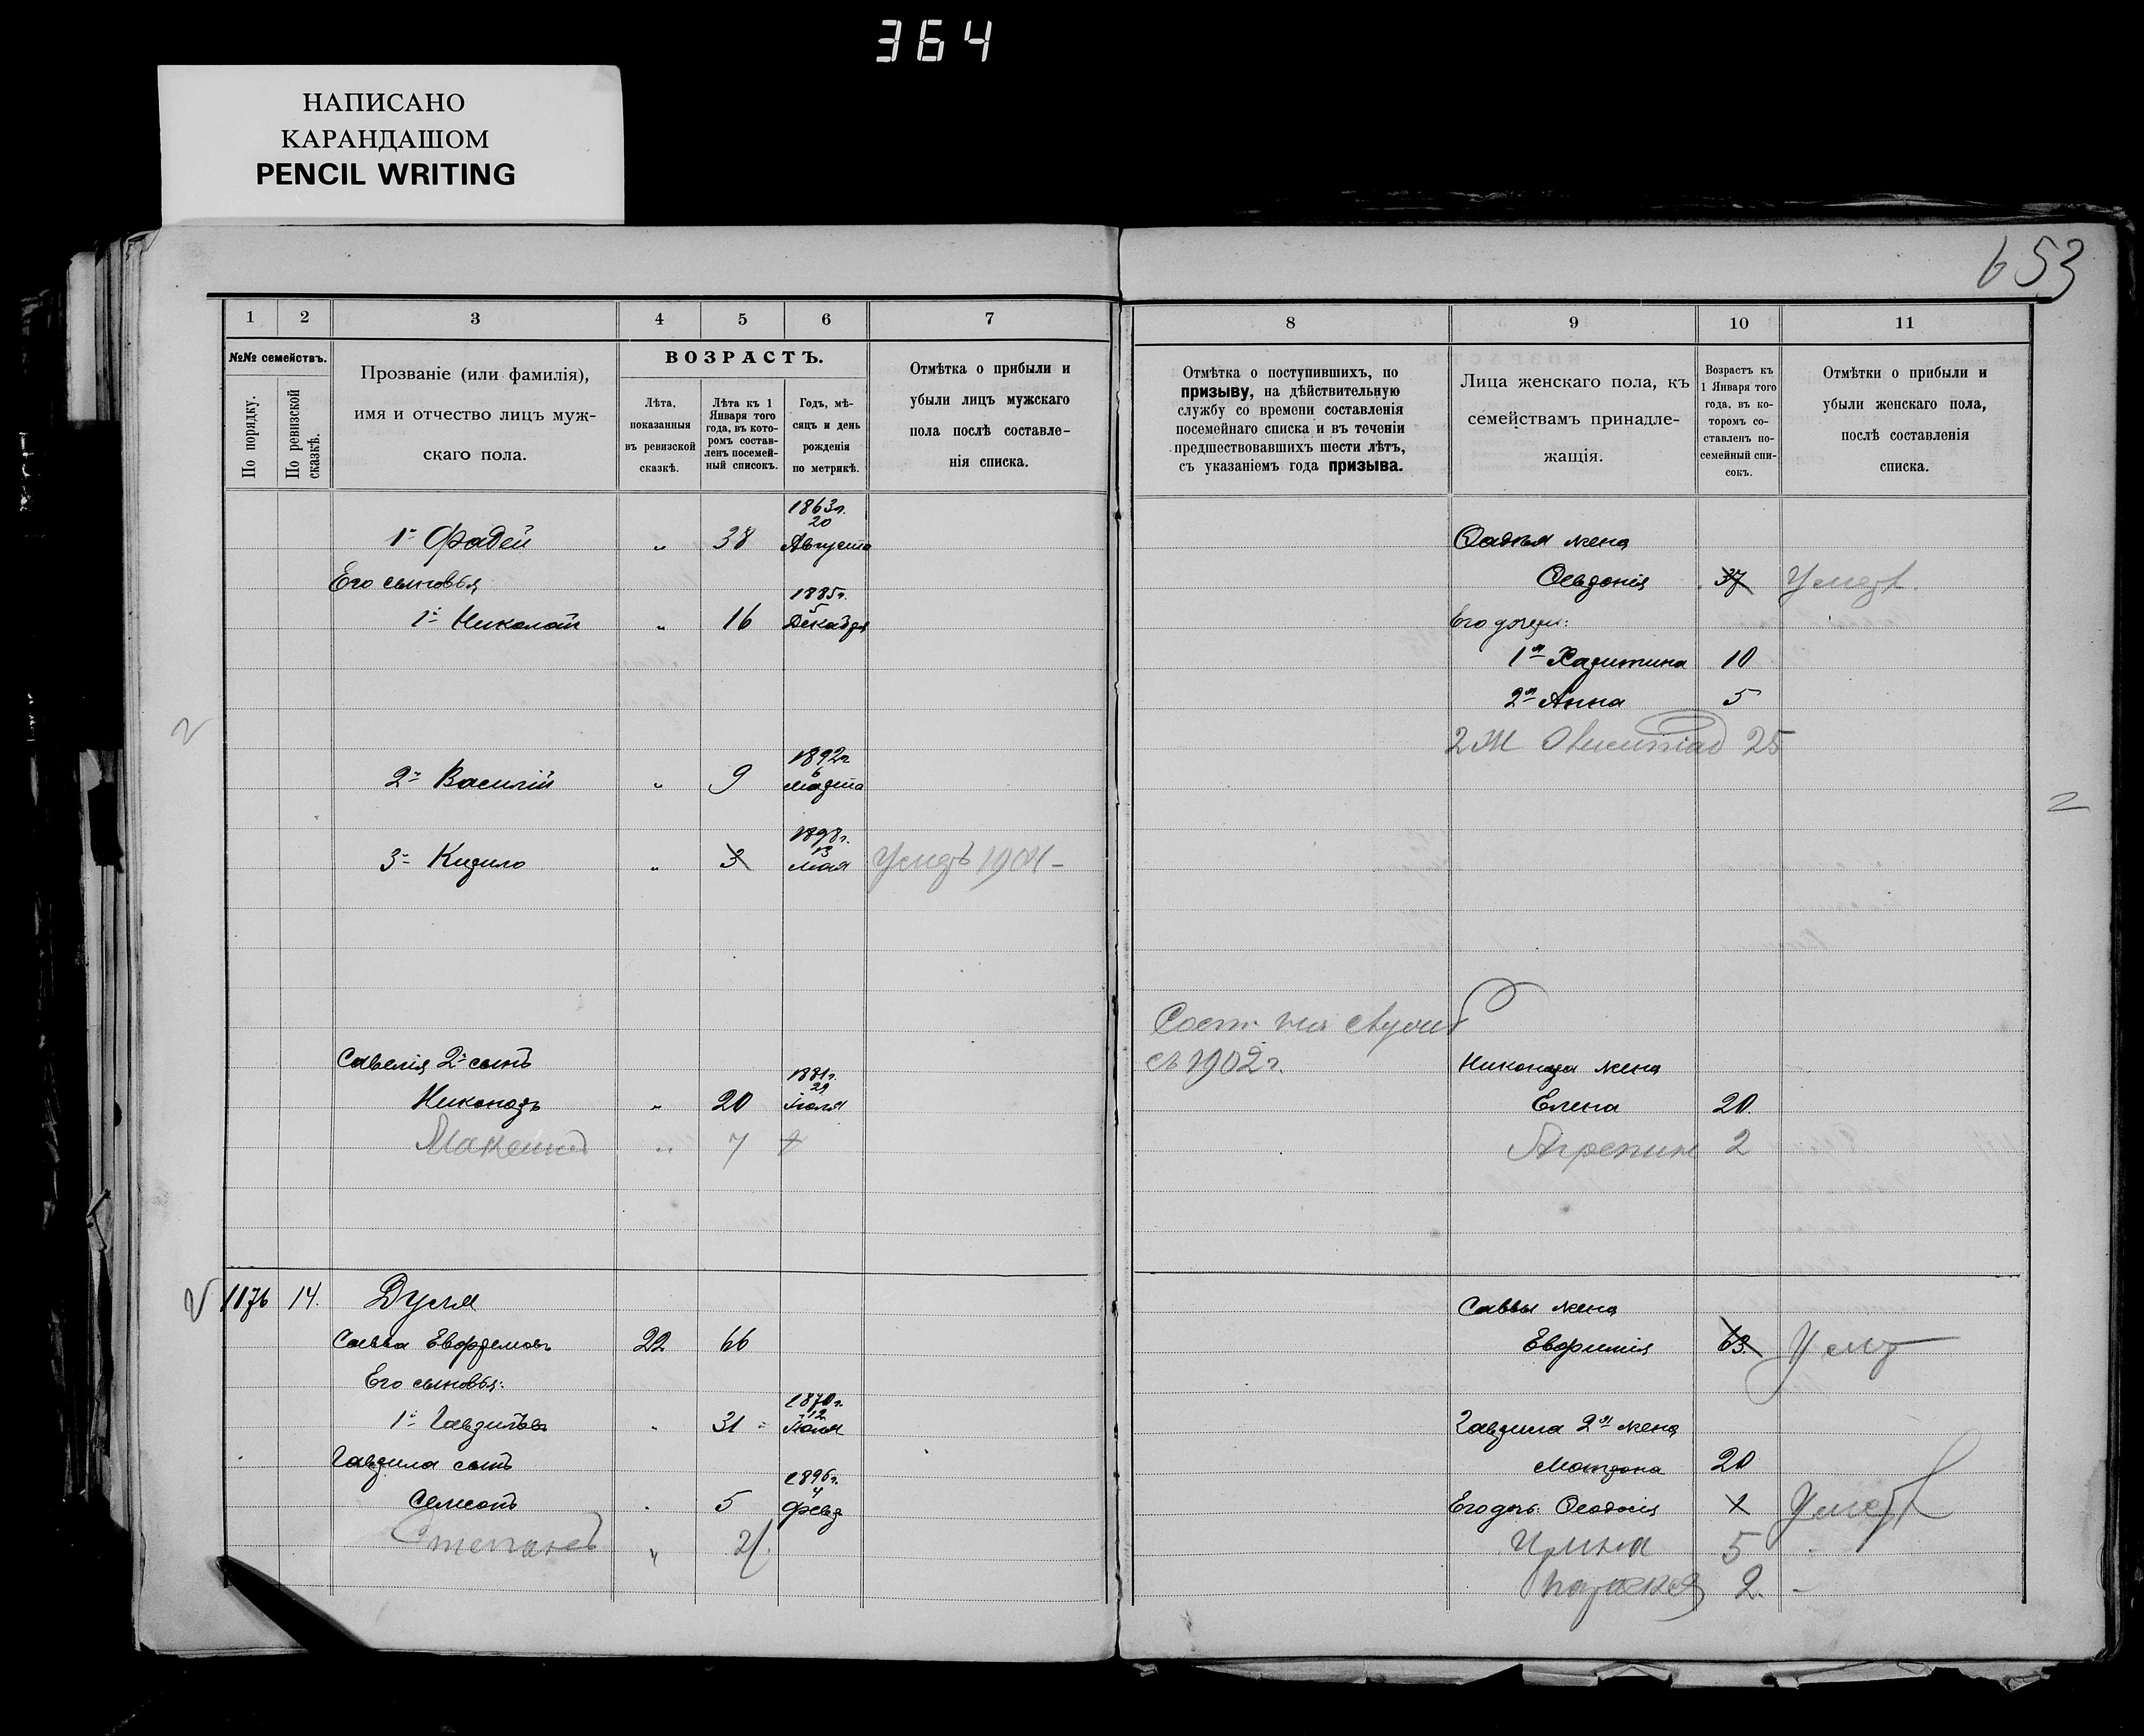 364
НАПИСАНО
КАРАНДАШОМ
PENCIL WRITING
653
1 2 3 4 5 6 7
№№ семействъ.
По порядку.
По ревизской сказкѣ.
Прозваніе (или фамилія),
имя и отчество лицъ муж-
скаго пола.
ВОЗРАСТЪ.
Лѣта,
показанныя
въ ревизской
сказкѣ.
Лѣта къ 1
Января того
года, въ кото-
ромъ состав-
ленъ посемей-
ный списокъ.
Годъ, мѣ-
сяцъ и день
рожденія
по метрикѣ.
Отмѣтка о прибыли и
убыли лицъ мужскаго
пола послѣ составле-
нія списка.
1863г.
20
1й Фадей " 38 Августа
Его сыновья
1885г.
5
1й Николай " 16 Декабря
1892г
6
2й Василій " 9 Марта
1898г.
13
3й Кирило " 3 Мая Умеръ 1904-
Савелія 2й сынъ
1881г.
29
Никоноръ " 20 Іюля
" 7
1176 14. Дуля
Савва Евфремовъ 22 66
Его сыновья:
1870г.
12
1й Гаврилъ " 31 Іюля
Гаврила сынъ
1896г.
4
Семенъ " 5 Февр
Степанъ " 2
8 9 10 11
Отмѣтка о поступившихъ, по
призыву, на дѣйствительную
службу со времени составленія
посемейнаго списка и въ теченіи
предшествовавшихъ шести лѣтъ,
съ указаніемъ года призыва.
Лица женскаго пола, къ
семействамъ принадле-
жащія.
Возрастъ къ
1 Января того
года, въ ко-
торомъ со-
ставленъ по-
семейный спи-
сокъ.
Отмѣтки о прибыли и
убыли женскаго пола,
послѣ составленія
списка.
Фадея жена
Февдонія 37 Умерл.
Его дочери:
1я Харитина 10
2я Анна 5
2 Ж 25
Сост. на
съ 1902г.
Никонора жена
Елена 20.
Агрепин 2
Саввы жена
Евфимія 63. Умер
Гаврила 2я жена
Матрона 20
Его дочь: Феодосія 1 Умер
Ирина 5
Параскев 2. -